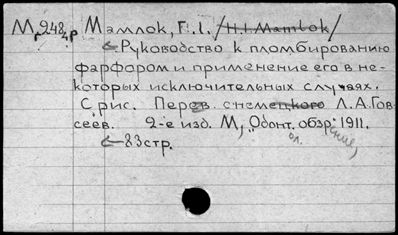 М 248 Мамлок, Г. I. /H.I. Mamlok/
Руководство к пломбированию
фарфором и применение его в не-
которых исключительных случаях.
С рис. Перев. с немецкого Л.А. Гов-
сеев. 2-е изд. М, "Одонт. обозрение", 1911.
83 стр.